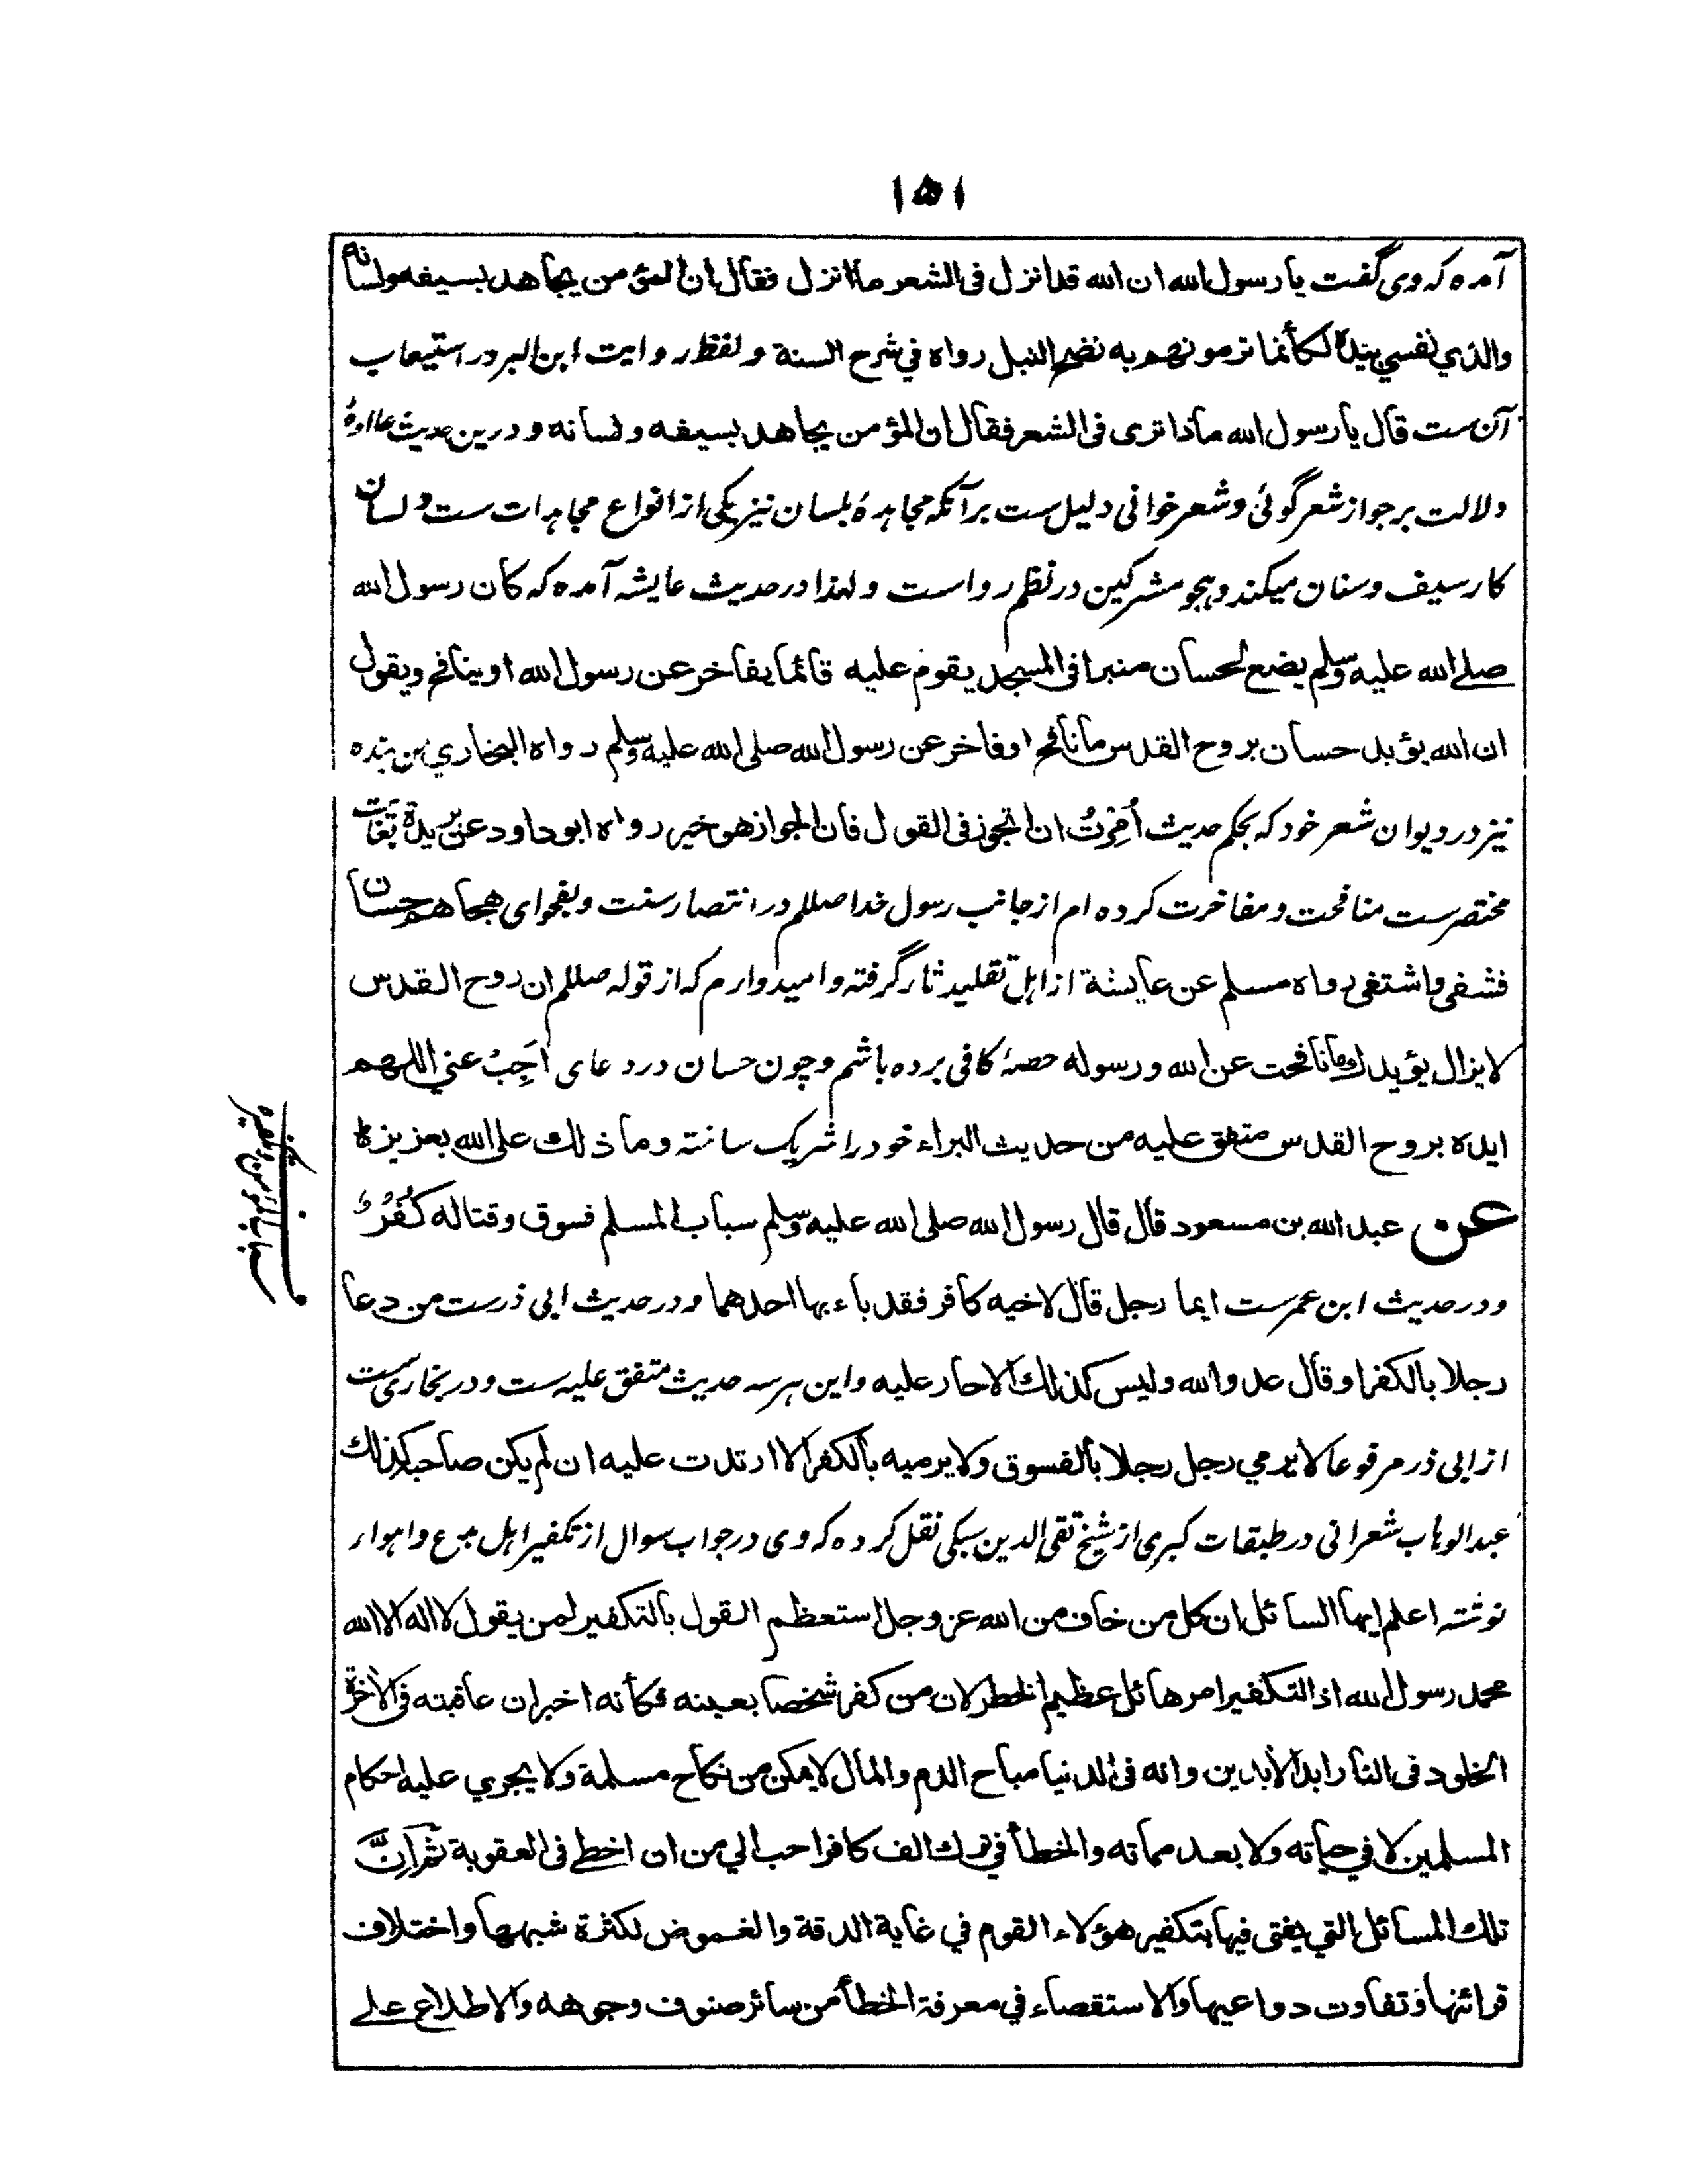 ۱۵۱
آمده که وی گفت یا رسول الله ان الله قد انزل فی الشعر ما انزل فقال ان المؤمن یجاهد بسیفه ولسانه
والذي نفسي بیده لکأنما ترمونهم به نضح النبل رواه في شرح السنة و لفظ روایت ابن البر در استیعاب
آن ست قال یا رسول الله ماذا تری فی الشعر فقال ان المؤمن یجاهد بسیفه ولسانه و درین حدیث علاوهٔ
دلالت بر جواز شعر گوئی و شعر خوانی دلیل ست برآنکه مجاهدهٔ بلسان نیز یکی از انواع مجاهدات ست و لسان
کار سیف و سنان میکند و هجو مشرکین در نظم رواست و لهذا در حدیث عایشه آمده که کان رسول الله
صلے الله علیه وسلم یضع لحسان منبرا فی المسجد یقوم علیه قائما یفاخر عن رسول الله او ینافح ویقول
ان الله یؤید حسان بروح القدس ما نافح او فاخر عن رسول الله صلی الله علیه وسلم رواه البخاري من بنده
نیز در دیوان شعر خود که بحکم حدیث اُمِرْتُ ان اتجوز فی القول فان الجواز هو خیر رواه ابو داود عن بریدة بغایت
مختصرست منافحت و مفاخرت کرده ام از جانب رسول خدا صللم در انتصار سنت و بفحوای هجاهم حسان
فشفی واشتفی رواه مسلم عن عایشة از اهل تقلید ثار گرفته و امیدوارم که از قوله صللم ان روح القدس
لا یزال یؤیدك ما نافحت عن الله ورسوله حصهٔ کافی برده باشم و چون حسان در دعای اَجِبْ عني اللهم
ایده بروح القدس متفق علیه من حدیث البراء خود را شریک ساخته وما ذلك علی الله بعزیزة
عن عبد الله بن مسعود قال قال رسول الله صلی الله علیه وسلم سباب المسلم فسوق وقتاله کُفْرٌ
و در حدیث ابن عمرست ایما رجل قال لاخیه کافر فقد باء بها احدهما و در حدیث ابی ذرست من دعا
رجلا بالکفر او قال عدو الله ولیس کذلك الا حار علیه و این هر سه حدیث متفق علیه ست و در بخاری ست
از ابی ذر مرفوعا لا یرمي رجل رجلا بالفسوق ولا یرمیه بالکفر الا ارتدت علیه ان لم یکن صاحبه کذلك
عبدالوهاب شعرانی در طبقات کبری از شیخ تقی الدین سبکی نقل کرده که وی در جواب سوال از تکفیر اهل بدع و اهواء
نوشته اعلم ایها السائل ان کل من خاف من الله عز وجل استعظم القول بالتکفیر لمن یقول لا اله الا الله
محمد رسول الله اذ التکفیر امر هائل عظیم الخطر لان من کفر شخصا بعینه فکأنه اخبر ان عاقبته فی الآخرة
الخلود فی النار ابد الآبدین وانه فی الدنیا مباح الدم والمال لا یمکن من نکاح مسلمة ولا یجري علیه احکام
المسلمین لا في حیاته ولا بعد مماته والخطأ في ترك الف کافر احب الي من ان اخطي فی العقوبة ثم انَّ
تلك المسائل التي یفتی فیها بتکفیر هؤلاء القوم في غایة الدقة والغموض لکثرة شبهها واختلاف
قرائنها وتفاوت دواعیها والاستقصاء في معرفة الخطأ من سائر صنوف وجوهه والاطلاع علے